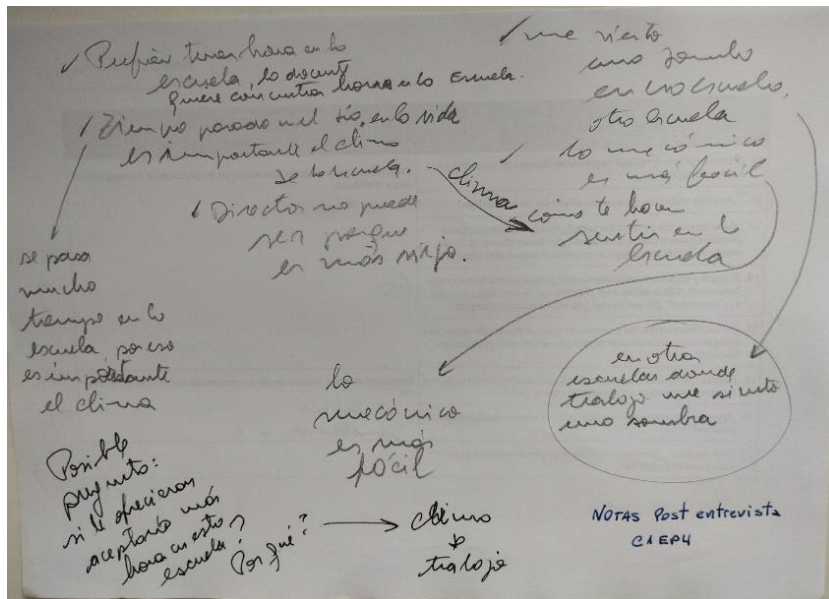 ✓ Prefiere tener hora en la
escuela, la docente
quiere concentrar horas en la Escuela.
✓ Tiempo pasado en el día, en la vida
es importante el clima
de la escuela.
✓ Director no puede
ser porque
es más viejo.
✓ me siento
una sombra
en otra escuela,
otra escuela
✓ lo mecánico
es más fácil
clima
cómo te hacen
sentir en la
escuela
se pasa
mucho
tiempo en la
escuela, por eso
es importante
el clima
lo
mecánico
es más
fácil
en otra
escuelas donde
trabajo me siento
una sombra
Posible
pregunta:
si le ofrecieran
aceptaría más
hora en esta
escuela?
Por qué?
clima
trabajo
NOTAS Post entrevista
C1EP4